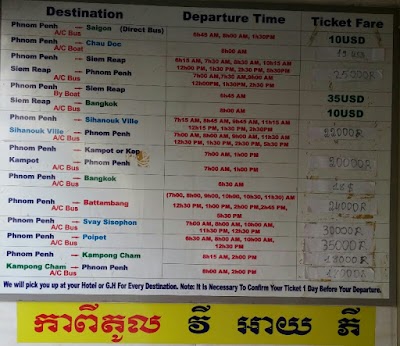 Destination Departure Time Ticket Fare
Phnom Penh Saigon (Direct Bus) 6h45 AM, 8h00 AM, 1h30PM 10USD
A/C Bus
Phnom Penh Chau Doc
A/C Boat
Phnom Penh Siem Reap 6h15 AM, 7h30 AM, 8h30 AM, 10h15 AM
A/C Bus 12h00 PM, 1h30 PM, 2h30 PM, 5h30PM
Siem Reap Phnom Penh 7h00 AM, 7h30 AM, 25000R
A/C Bus 12h00PM, 1h30PM, 2h30 PM
Phnom Penh Siem Reap 6h45 AM 35USD
By Boat
Siem Reap Bangkok 8h00 AM 10USD
A/C Bus
Phnom Penh Sihanouk Ville 7h15 AM, 8h45 AM, 9h45 AM, 11h15 AM
A/C Bus 12h15 PM, 1h30 PM, 2h30PM 22000R
Sihanouk Ville Phnom Penh 7h00 AM, 8h00 AM, 9h00 AM, 11h30 AM
A/C Bus 12h30 PM, 1h30 PM, 2h00 PM
Phnom Penh Kampot or Kep 7h00 AM, 1h00 PM
A/C Bus
Kampot Phnom Penh 7h00 AM, 1h00 PM
A/C Bus
Phnom Penh Bangkok 6h30 AM
A/C Bus
Phnom Penh Battambang (7h00, 8h00, 9h00, 10h00, 10h30, 11h30) AM
A/C Bus 12h30 PM, 1h00 PM, 2h00 PM, 2h45 PM,
5h30 PM
Phnom Penh Svay Sisophon 7h00 AM, 8h00 AM, 10h00 AM
A/C Bus 11h30 AM, 12h30 PM 30000R
Phnom Penh Poipet 6h30 AM, 8h00 AM, 10h00 AM,
A/C Bus 12h30 PM 35000R
Phnom Penh Kampong Cham 8h15 AM, 2h00 PM
A/C Bus
Kampong Cham Phnom Penh 8h00 AM, 2h00 PM
A/C Bus
We will pick you up at your Hotel or G.H For Every Destination. Note: It Is Necessary To Confirm Your Ticket 1 Day Before Your Departure.
កាពីតូល វី អាយ ភី